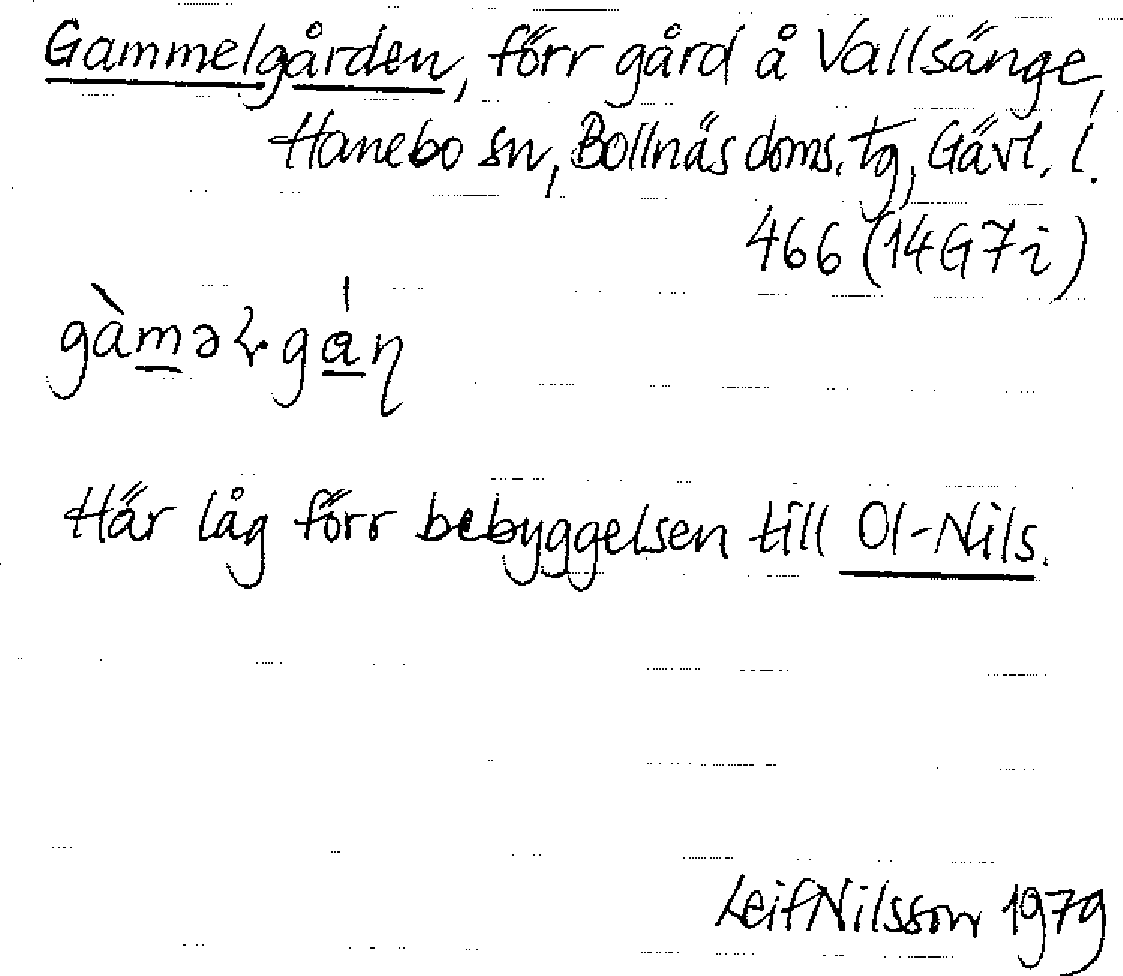 Gammelgården, förr gård å Vallsänge,
Hanebo sn, Bollnäs doms. tg, Gävl. l.
466 (14G7i)
Här låg förr bebyggelsen till Ol-Nils.
Leif Nilsson 1979